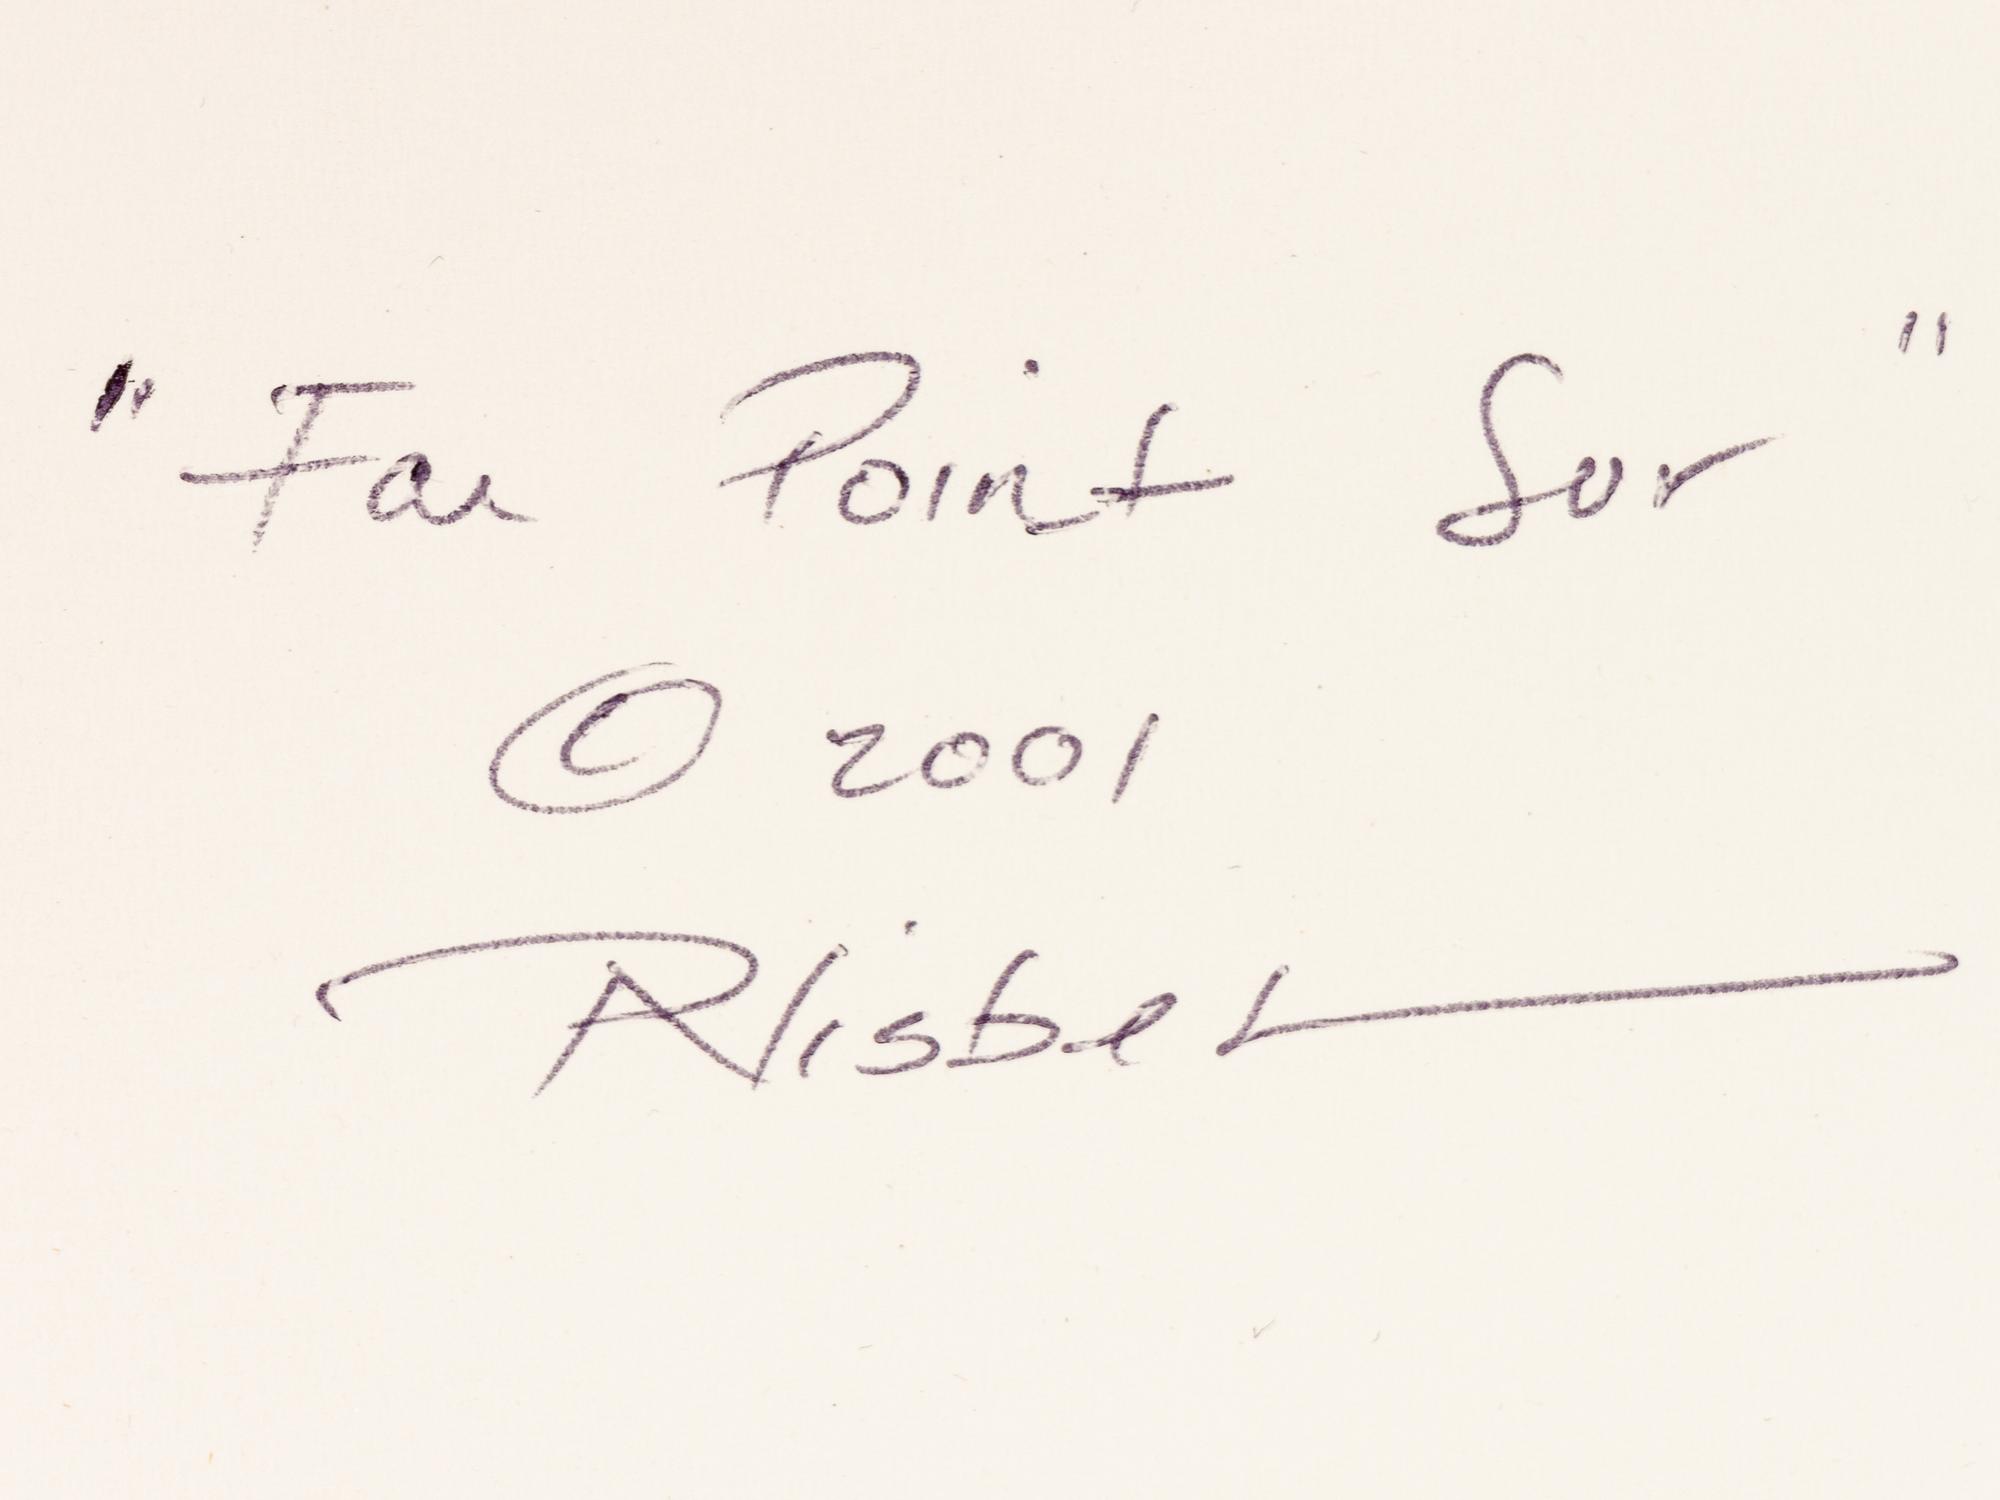 "Far Point Sur"
© 2001
R Nisbet